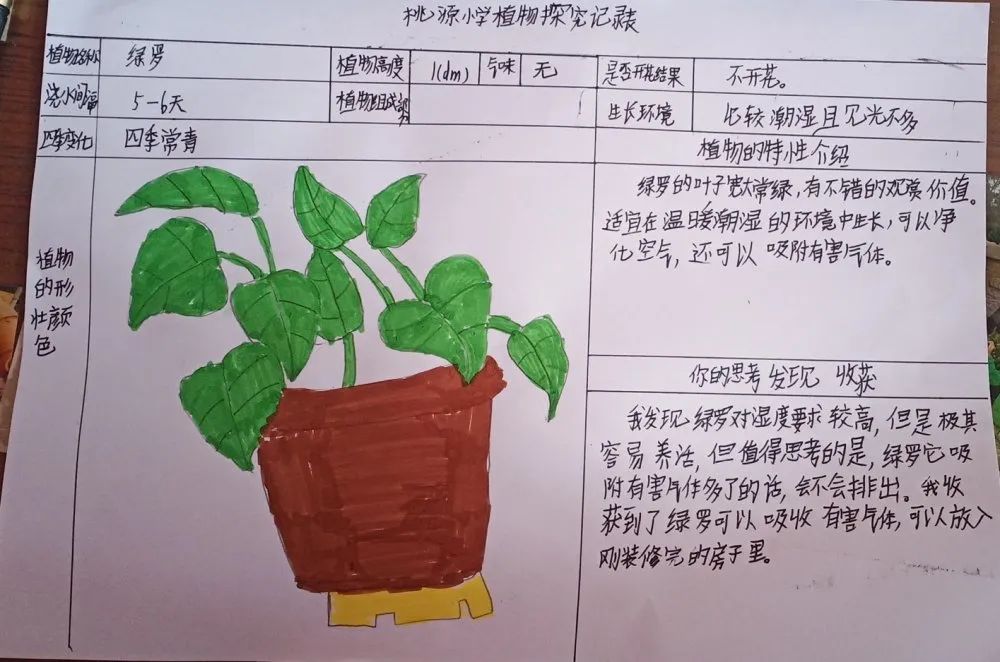 桃源小学植物探究记录表
植物名称 绿罗 植物高度 1(dm) 气味 无 是否开花结果 不开花。
浇水间隔 5-6天 植物组成部分 生长环境 比较潮湿且见光不多
四季变化 四季常青 植物的特性介绍
绿罗的叶子宽大常绿,有不错的观赏价值。
适宜在温暖潮湿的环境中生长,可以净
化空气,还可以吸附有害气体。
植物
的形
壮颜
色
你的思考发现 收获
我发现绿罗对湿度要求较高,但是极其
容易养活,但值得思考的是,绿罗它吸
附有害气体多了的话,会不会排出。我收
获到了绿罗可以吸收有害气体,可以放入
刚装修完的房子里。